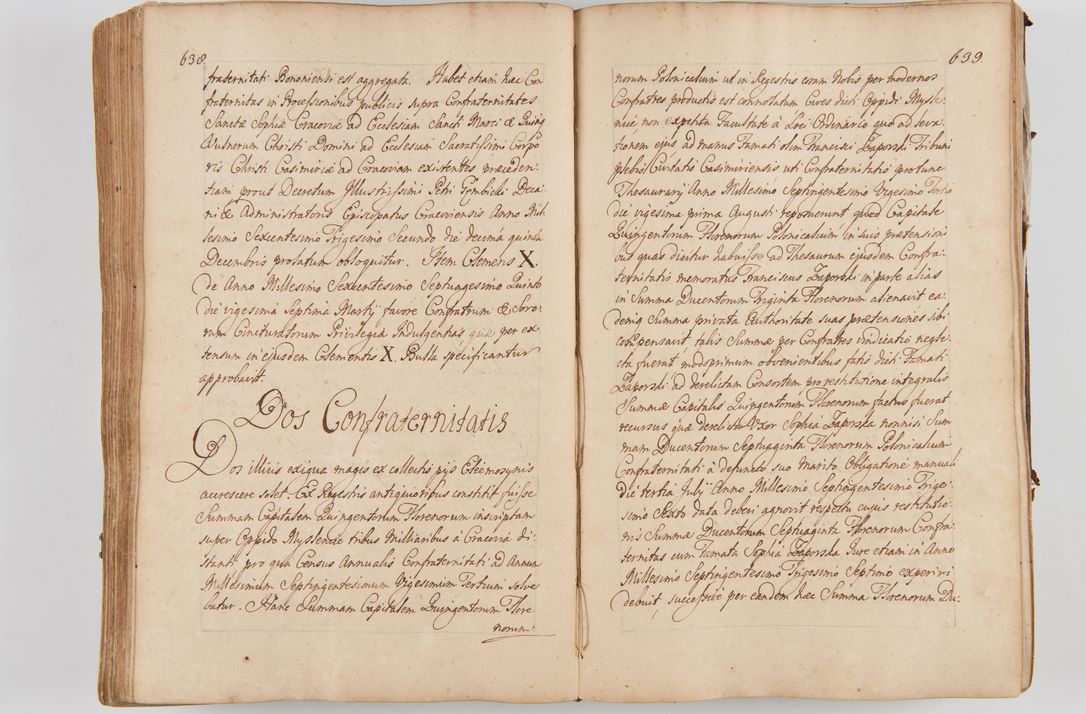 638
fraternitati Bononiensi est aggregata. Habet etiam hæc Con
fraternitas in Processionibus publicis supra Confraternitates
Sanctæ Sophiæ Cracoviæ ad Ecclesiam Sancti Marci & Quinq
Vulnerum Christi Domini ad Ecclesiam Sacratissimi Corpo
ris Christi Casimiriæ ad Cracoviam existentes præceden-
tiam prout Decretum Illustrissimi Petri Gembicki Deca
ni & Administratoris Episcopatus Cracoviensis Anno Mil
lesimo Sexcentesimo Trigesimo Secundo die decima quinta
Decembris prolatum obloquitur. Item Clemens X.
de Anno Millesimo Sexcentesimo Septuagesimo Quinto
die vigesima Septima Martij favore Confratrum & Soro-
rum Cincturatorum Privilegia Indulgentias quæ per ex
tensum in ejusdem Clementis X. Bulla specificantur
approbavit.
Dos Confraternitatis
Dos illius exigua magis ex collectis pijs Eleemosynis
accrescere solet. Ex Regestris antiquioribus constitit fuisse
Summam Capitalem Quingentorum Florenorum inscriptam
super Oppido Myslenice tribus Milliaribus à Cracovia di-
stanti pro qua Census Annualis Confraternitati ad Annum
Millesimum Septingentesimum Vigesimum Tertium solve
batur. Hanc Summam Capitalem Quingentorum Flore
norum
639.
norum Polonicalium ut in Regestris coram Nobis per modernos
Confratres productis est connotatum Cives dicti Oppidi Mysle-
nice, non expetita Facultate à Loci Ordinario quo ad leva-
tionem ejus ad manus Famati olim Francisci Zaporski Tribuni
plebis Civitatis Casimiriensis uti Confraternitatis pro tunc
Thesaurarij Anno Millesimo Septingentesimo Vigesimo Tertio
die vigesima prima Augusti reposuerunt quod Capitale
Quingentorum Florenorum Polonicalium in suis prætensioni
bus quas dicitur habuisse ad Thesaurum ejusdem Confra-
ternitatis memoratus Franciscus Zaporski in parte alias
in Summa Ducentorum Triginta Florenorum alienavit ea-
demq Summa privata Authoritate suas prætensiones sibi
compensavit talis Summæ per Confratres vindicatio negle-
cta fuerat modo primum obvenientibus fatis dicti Famati
Zaporski ad derelictam Consortem pro restitutione integralis
Summæ Capitalis Quingentorum Florenorum factus fuerat
recursus quæ derelicta Uxor Sophia Zaporska nonnisi Sum
mam Ducentorum Septuaginta Florenorum Polonicalium
Confraternitati à defuncto suo Marito Obligatione manuali
die tertia July Anno Millesimo Septingentesimo Trige-
simo Sexto data deberi agnovit respectu cujus restitutio-
nis Summæ Ducentorum Septuaginta Florenorum Confra-
ternitas cum Famata Sophia Zaporska Jure etiam in Anno
Millesimo Septingentesimo Trigesimo Septimo experiri
debuit successive per eandem hæc Summa Florenorum Du-